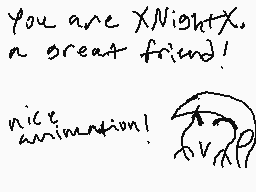 You are XNightX.
a great friend!
nice
animation!